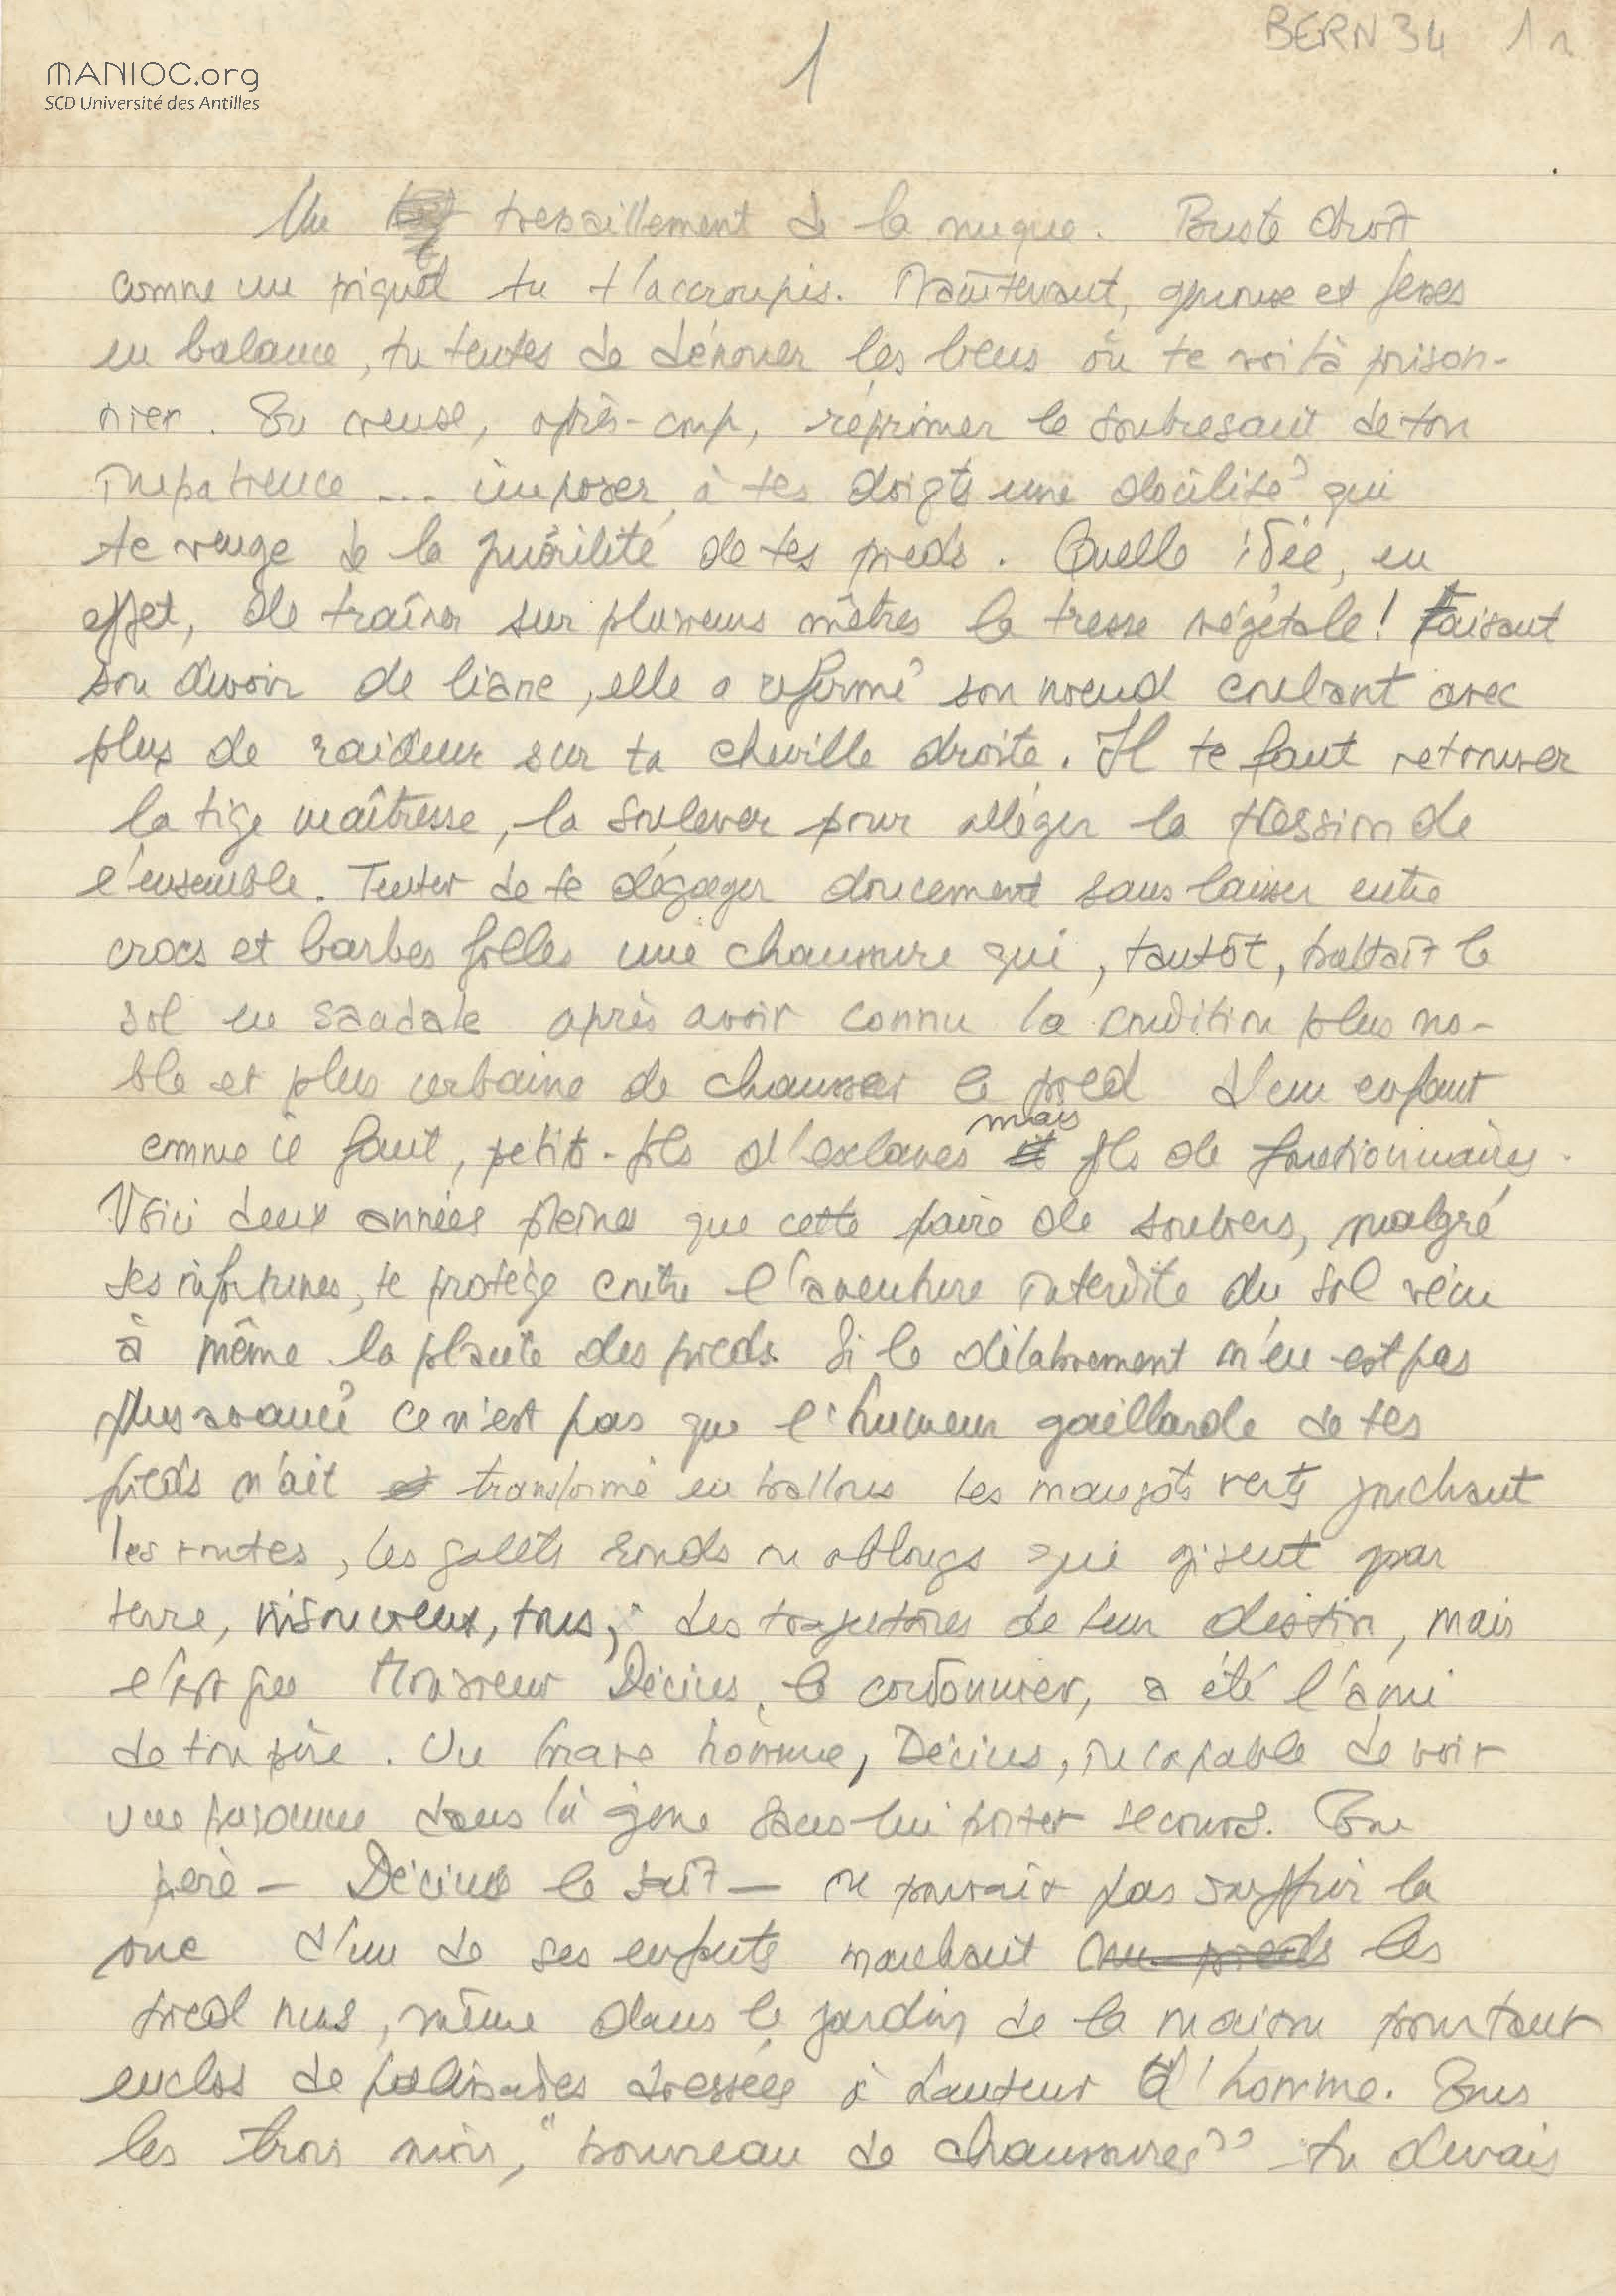 BERN 34 1r
1
MANIOC.org
SCD Université des Antilles
Un tressaillement de la nuque. Buste droit
comme un piquet tu t'accroupis. Maintenant, genoux et fesses
en balance, tu tentes de dénouer les liens où te voilà prison-
nier. Tu veux, après-coup, réprimer le soubresaut de ton
impatience ... imposer à tes doigts une docilité qui
te venge de la puérilité de tes pieds. Quelle idée, en
effet, de traîner sur plusieurs mètres la tresse végétale! Faisant
son devoir de liane, elle a refermé son nœud coulant avec
plus de raideur sur ta cheville droite. Il te faut retrouver
la tige maîtresse, la soulever pour alléger la pression de
l'ensemble. Tenter de te dégager doucement sans laisser entre
crocs et barbes folles une chaussure qui, tantôt, battait le
sol en sandale après avoir connu la condition plus no-
ble et plus urbaine de chausser le pied d'un enfant
comme il faut, petit-fils d'esclaves mais fils de fonctionnaires.
Voici deux années pleines que cette paire de souliers, malgré
ses infortunes, te protège contre l'aventure interdite du sol vécu
à même la plante des pieds. Si le délabrement n'en est pas
plus avancé ce n'est pas que l'humeur gaillarde de tes
pieds n'ait transformé en ballons les mangots verts jonchant
les routes, les galets ronds ou oblongs qui gisent par
terre, insoucieux, tous, des trajectoires de leur destin, mais
c'est que Monsieur Décius, le cordonnier, a été l'ami
de ton père. Un brave homme, Décius, incapable de voir
une personne dans la gêne sans lui porter secours. Ton
père — Décius le sait — ne pouvait pas souffrir la
vue d'un de ses enfants marchant nu-pieds les
pied nus, même dans le jardin de la maison pourtant
enclos de palissades dressées à hauteur d'homme. Tous
les trois mois, "bourreau de chaussures" tu devais